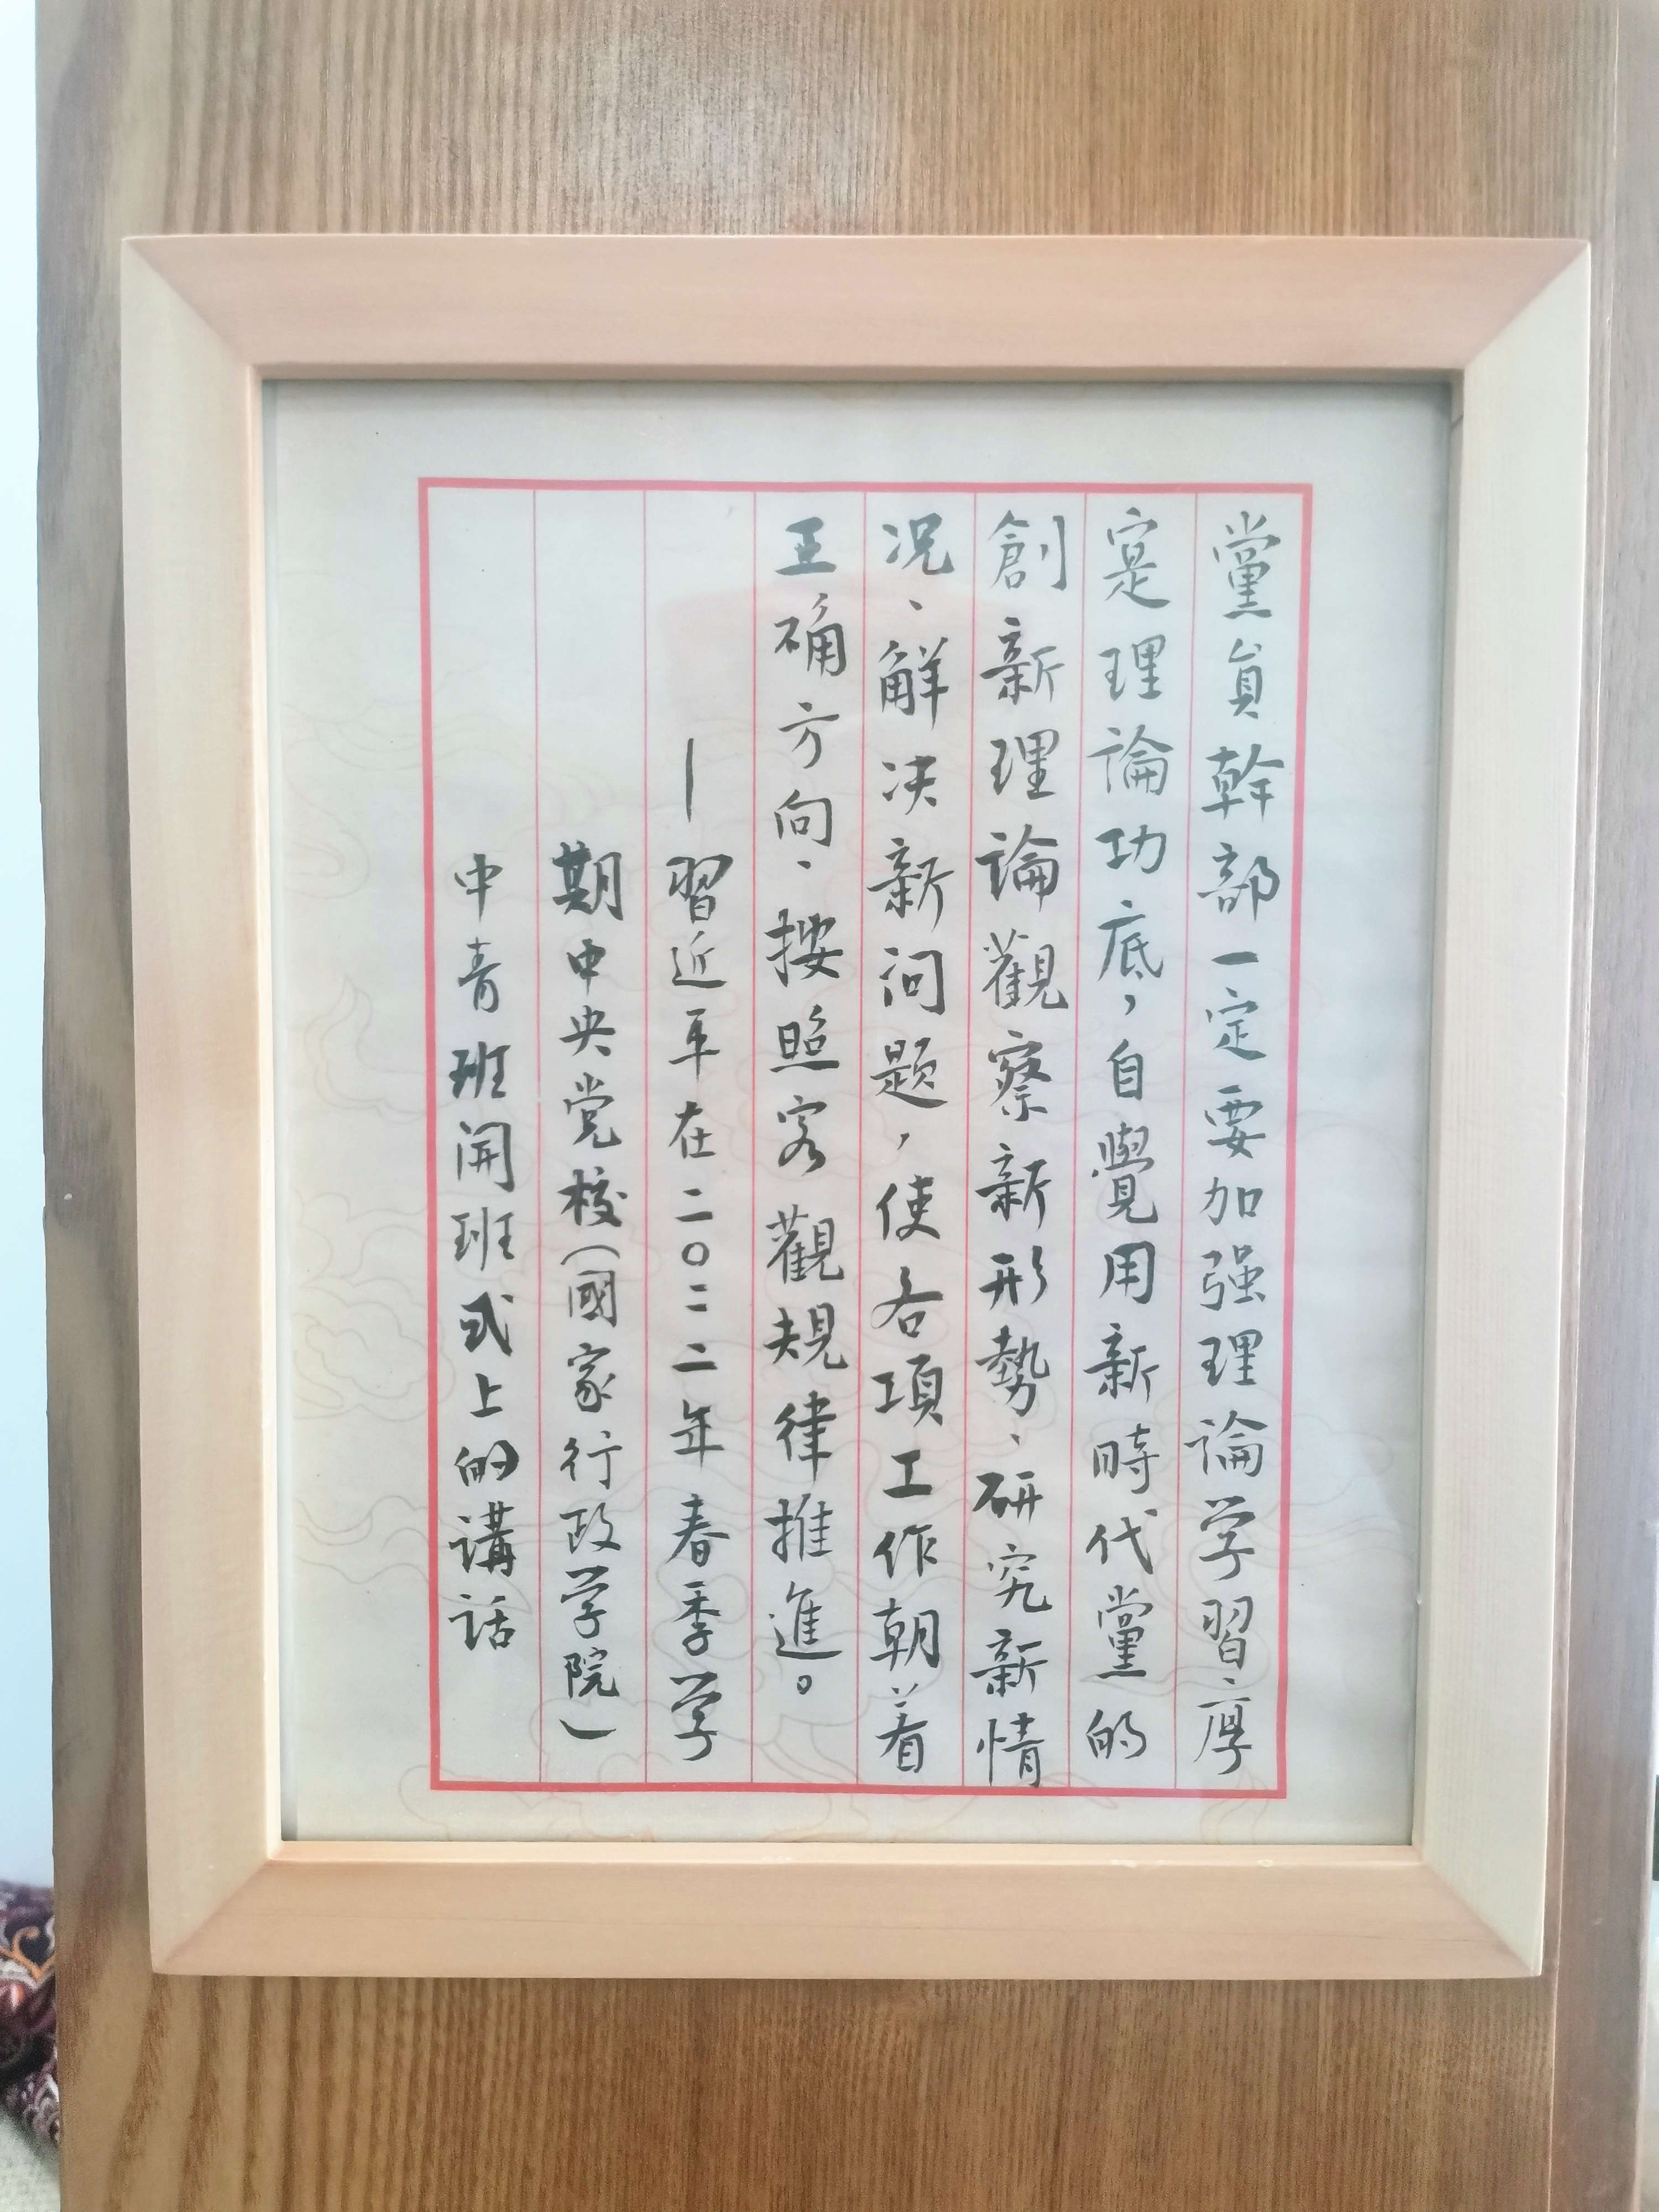 黨員幹部一定要加强理論学習、厚
寔理論功底，自覺用新時代黨的
創新理論觀察新形勢、研究新情
况、解决新问题，使各項工作朝着
正确方向、按照客觀規律推進。
—習近平在二〇二二年春季学
期中央党校(國家行政学院)
中青班開班式上的講話